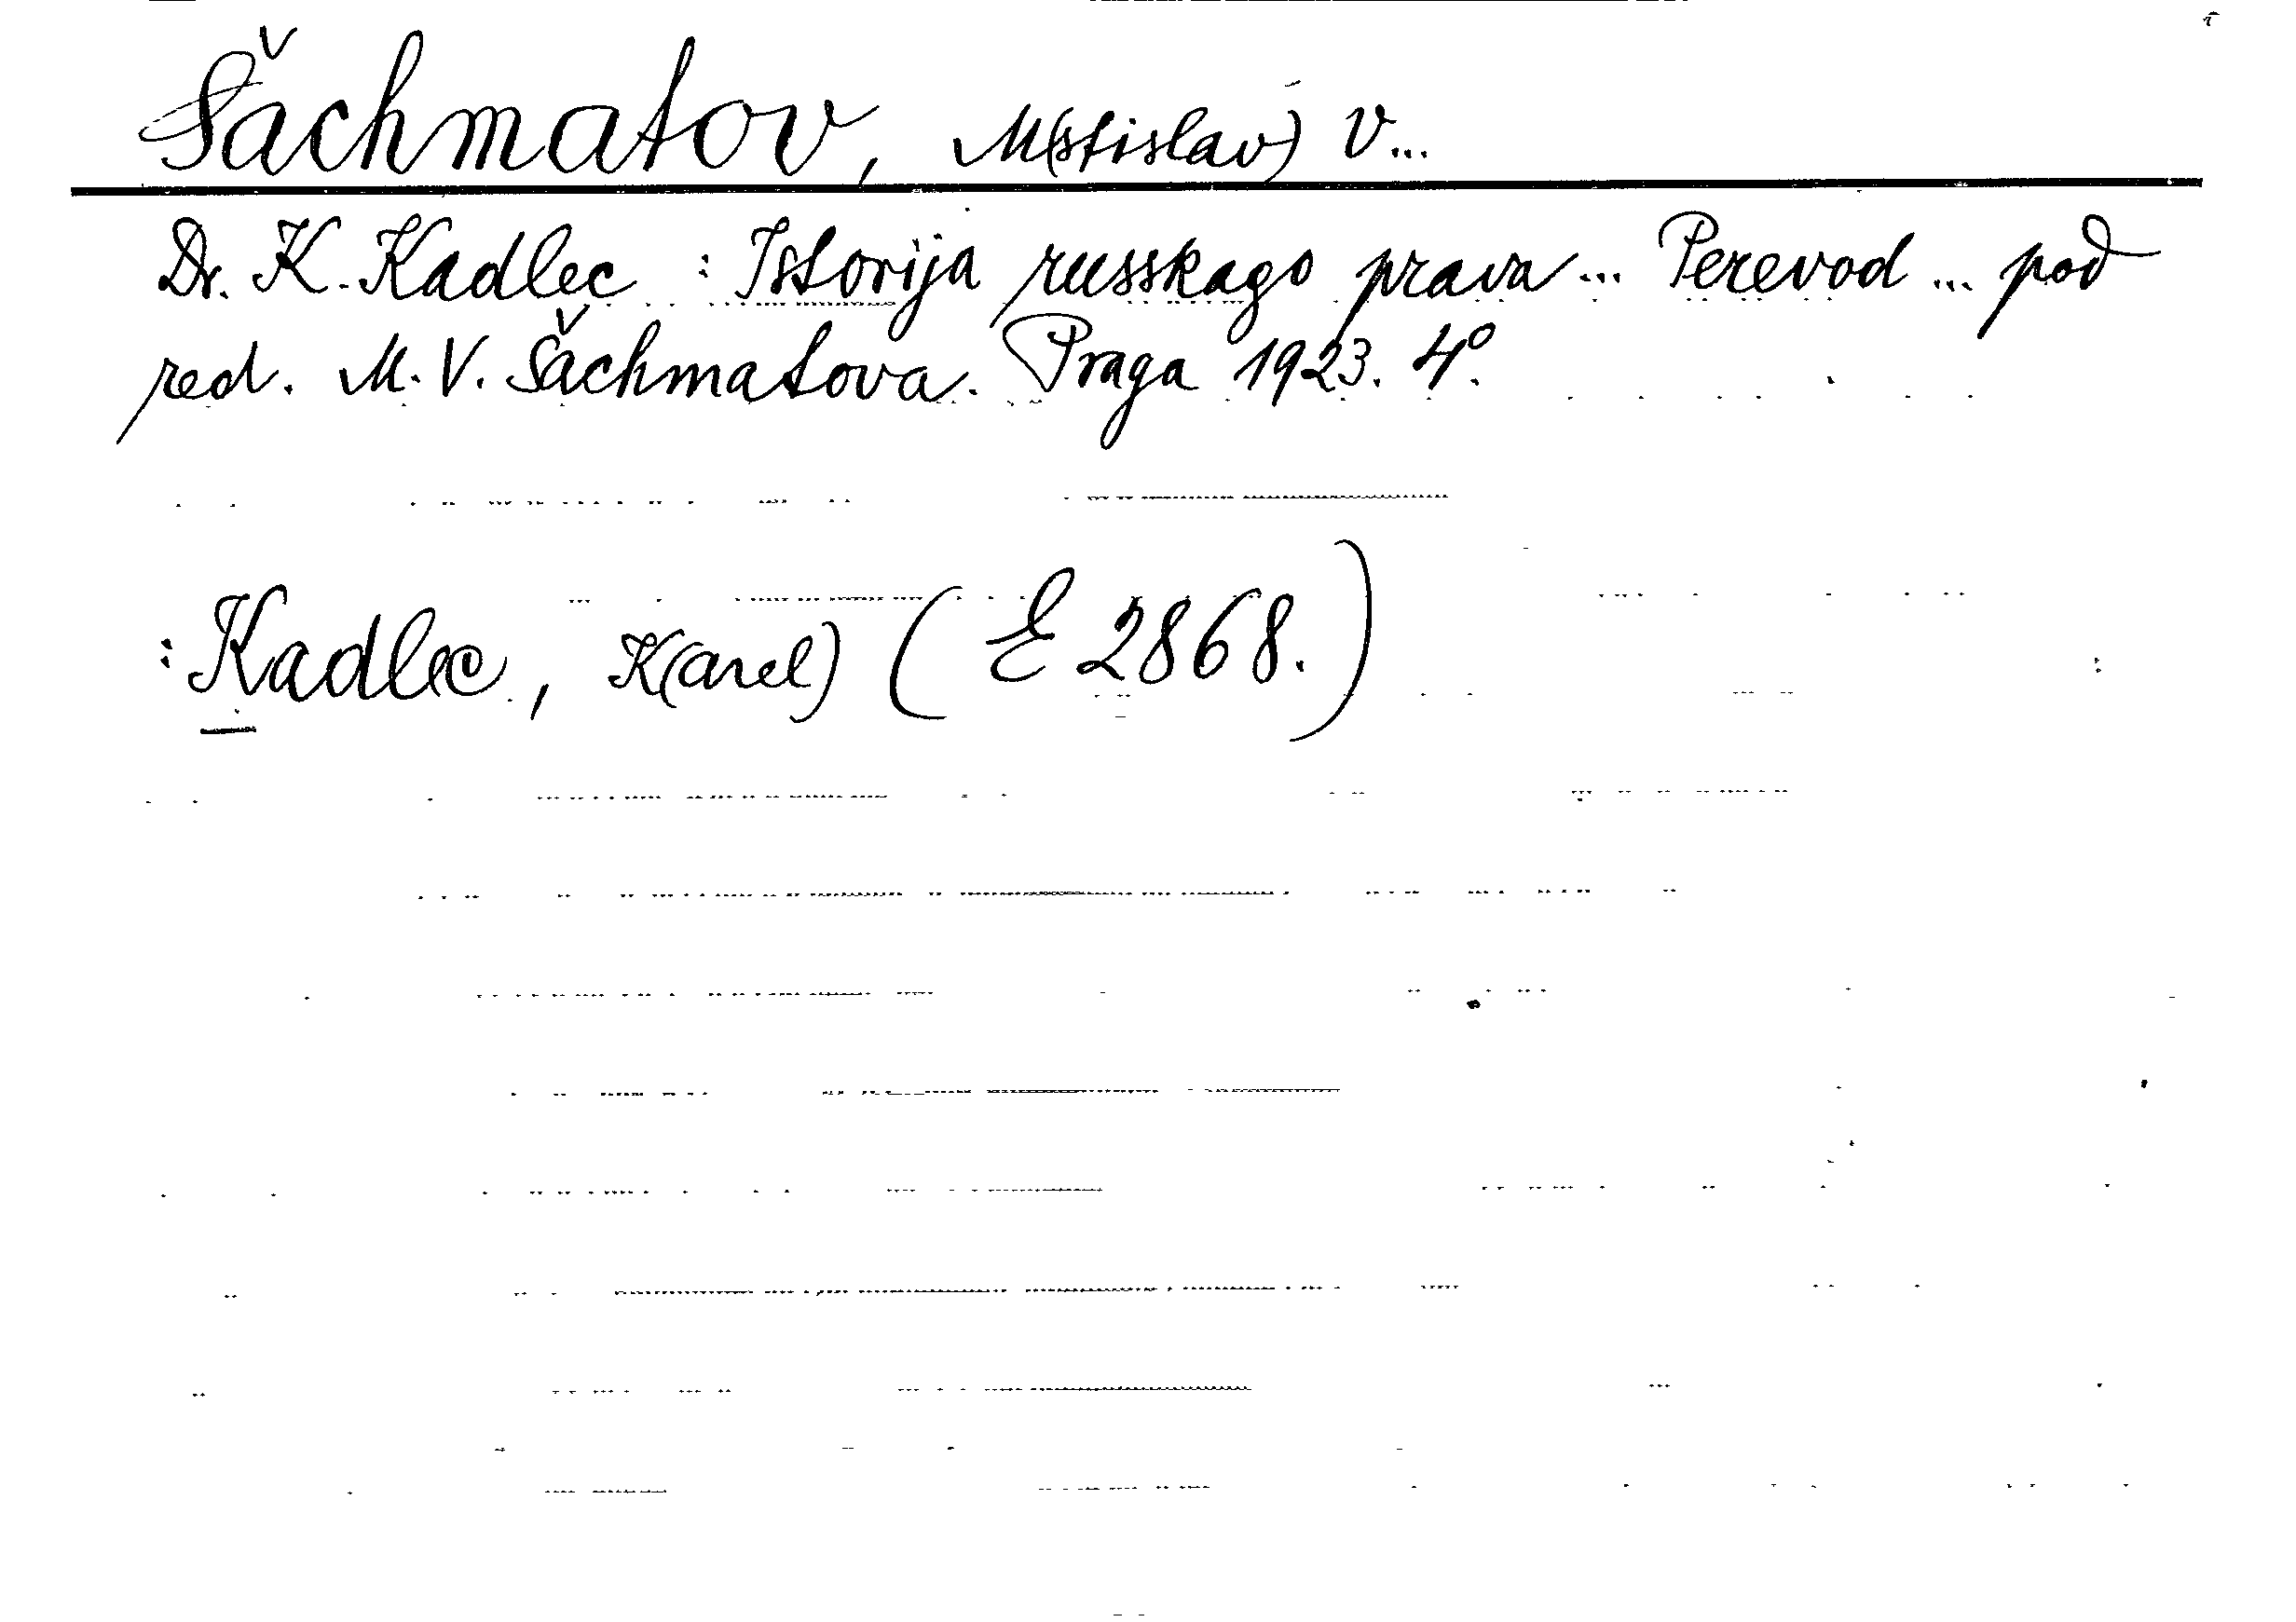 Šachmatov, M(stislav) V...
Dr. K. Kadlec : Istorija russkago prava ... Perevod ... pod
red. M. V. Šachmatova. Praga 1923. 4°.
: Kadlec, K(arel) (E 2868.)